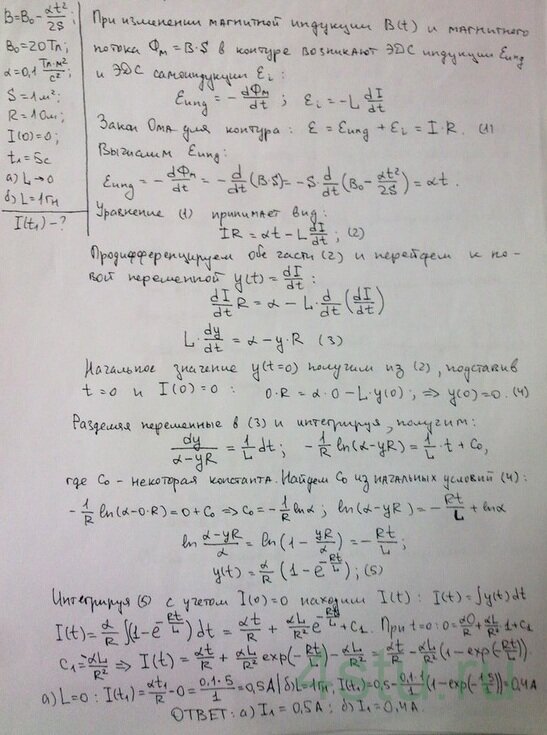 B=B₀-αt²/2S;
B₀=20Тл;
α=0,1 Тл·м²/с²;
S=1м²;
R=1Ом;
I(0)=0;
t₁=5с
а) L→0
б) L=1Гн
I(t₁)-?
При изменении магнитной индукции B(t) и магнитного
потока Φₘ=B·S в контуре возникают ЭДС индукции Ɛинд
и ЭДС самоиндукции Ɛᵢ:
Ɛинд=-dΦₘ/dt; Ɛᵢ=-L dI/dt
Закон Ома для контура: Ɛ=Ɛинд+Ɛᵢ=I·R. (1)
Вычислим Ɛинд:
Ɛинд=-dΦₘ/dt=-d/dt(B·S)=-S·d/dt(B₀-αt²/2S)=αt.
Уравнение (1) принимает вид:
IR=αt-L dI/dt; (2)
Продифференцируем обе части (2) и перейдем к но-
вой переменной y(t)=dI/dt:
dI/dt R=α-L·d/dt(dI/dt)
L·dy/dt=α-y·R (3)
Начальное значение y(t=0) получим из (2), подставив
t=0 и I(0)=0: 0·R=α·0-L·y(0); ⇒ y(0)=0. (4)
Разделяя переменные в (3) и интегрируя, получим:
dy/α-yR=1/L dt; -1/R ln(α-yR)=1/L·t+C₀,
где C₀-некоторая константа. Найдем C₀ из начальных условий (4):
-1/R ln(α-0·R)=0+C₀⇒C₀=-1/R lnα; ln(α-yR)=-Rt/L+lnα
ln α-yR/α=ln(1-yR/α)=-Rt/L;
y(t)=α/R(1-e^-Rt/L); (5)
Интегрируя (5) с учетом I(0)=0 находим I(t): I(t)=∫y(t)dt
I(t)=α/R∫(1-e^-Rt/L)dt=αt/R+αL/R²e^-Rt/L+C₁. При t=0: 0=α0/R+αL/R²·1+C₁
C₁=-αL/R²⇒I(t)=αt/R+αL/R²exp(-Rt/L)-αL/R²=αt/R-αL/R²(1-exp(-Rt/L))
а) L=0: I(t₁)=αt₁/R-0=0,1·5/1=0,5А | б) L=1Гн, I(t₁)=0,5-0,1·1/1(1-exp(-1·5/1))=0,4А
ОТВЕТ: а) I₁=0,5А; б) I₁=0,4А.
4stu.ru